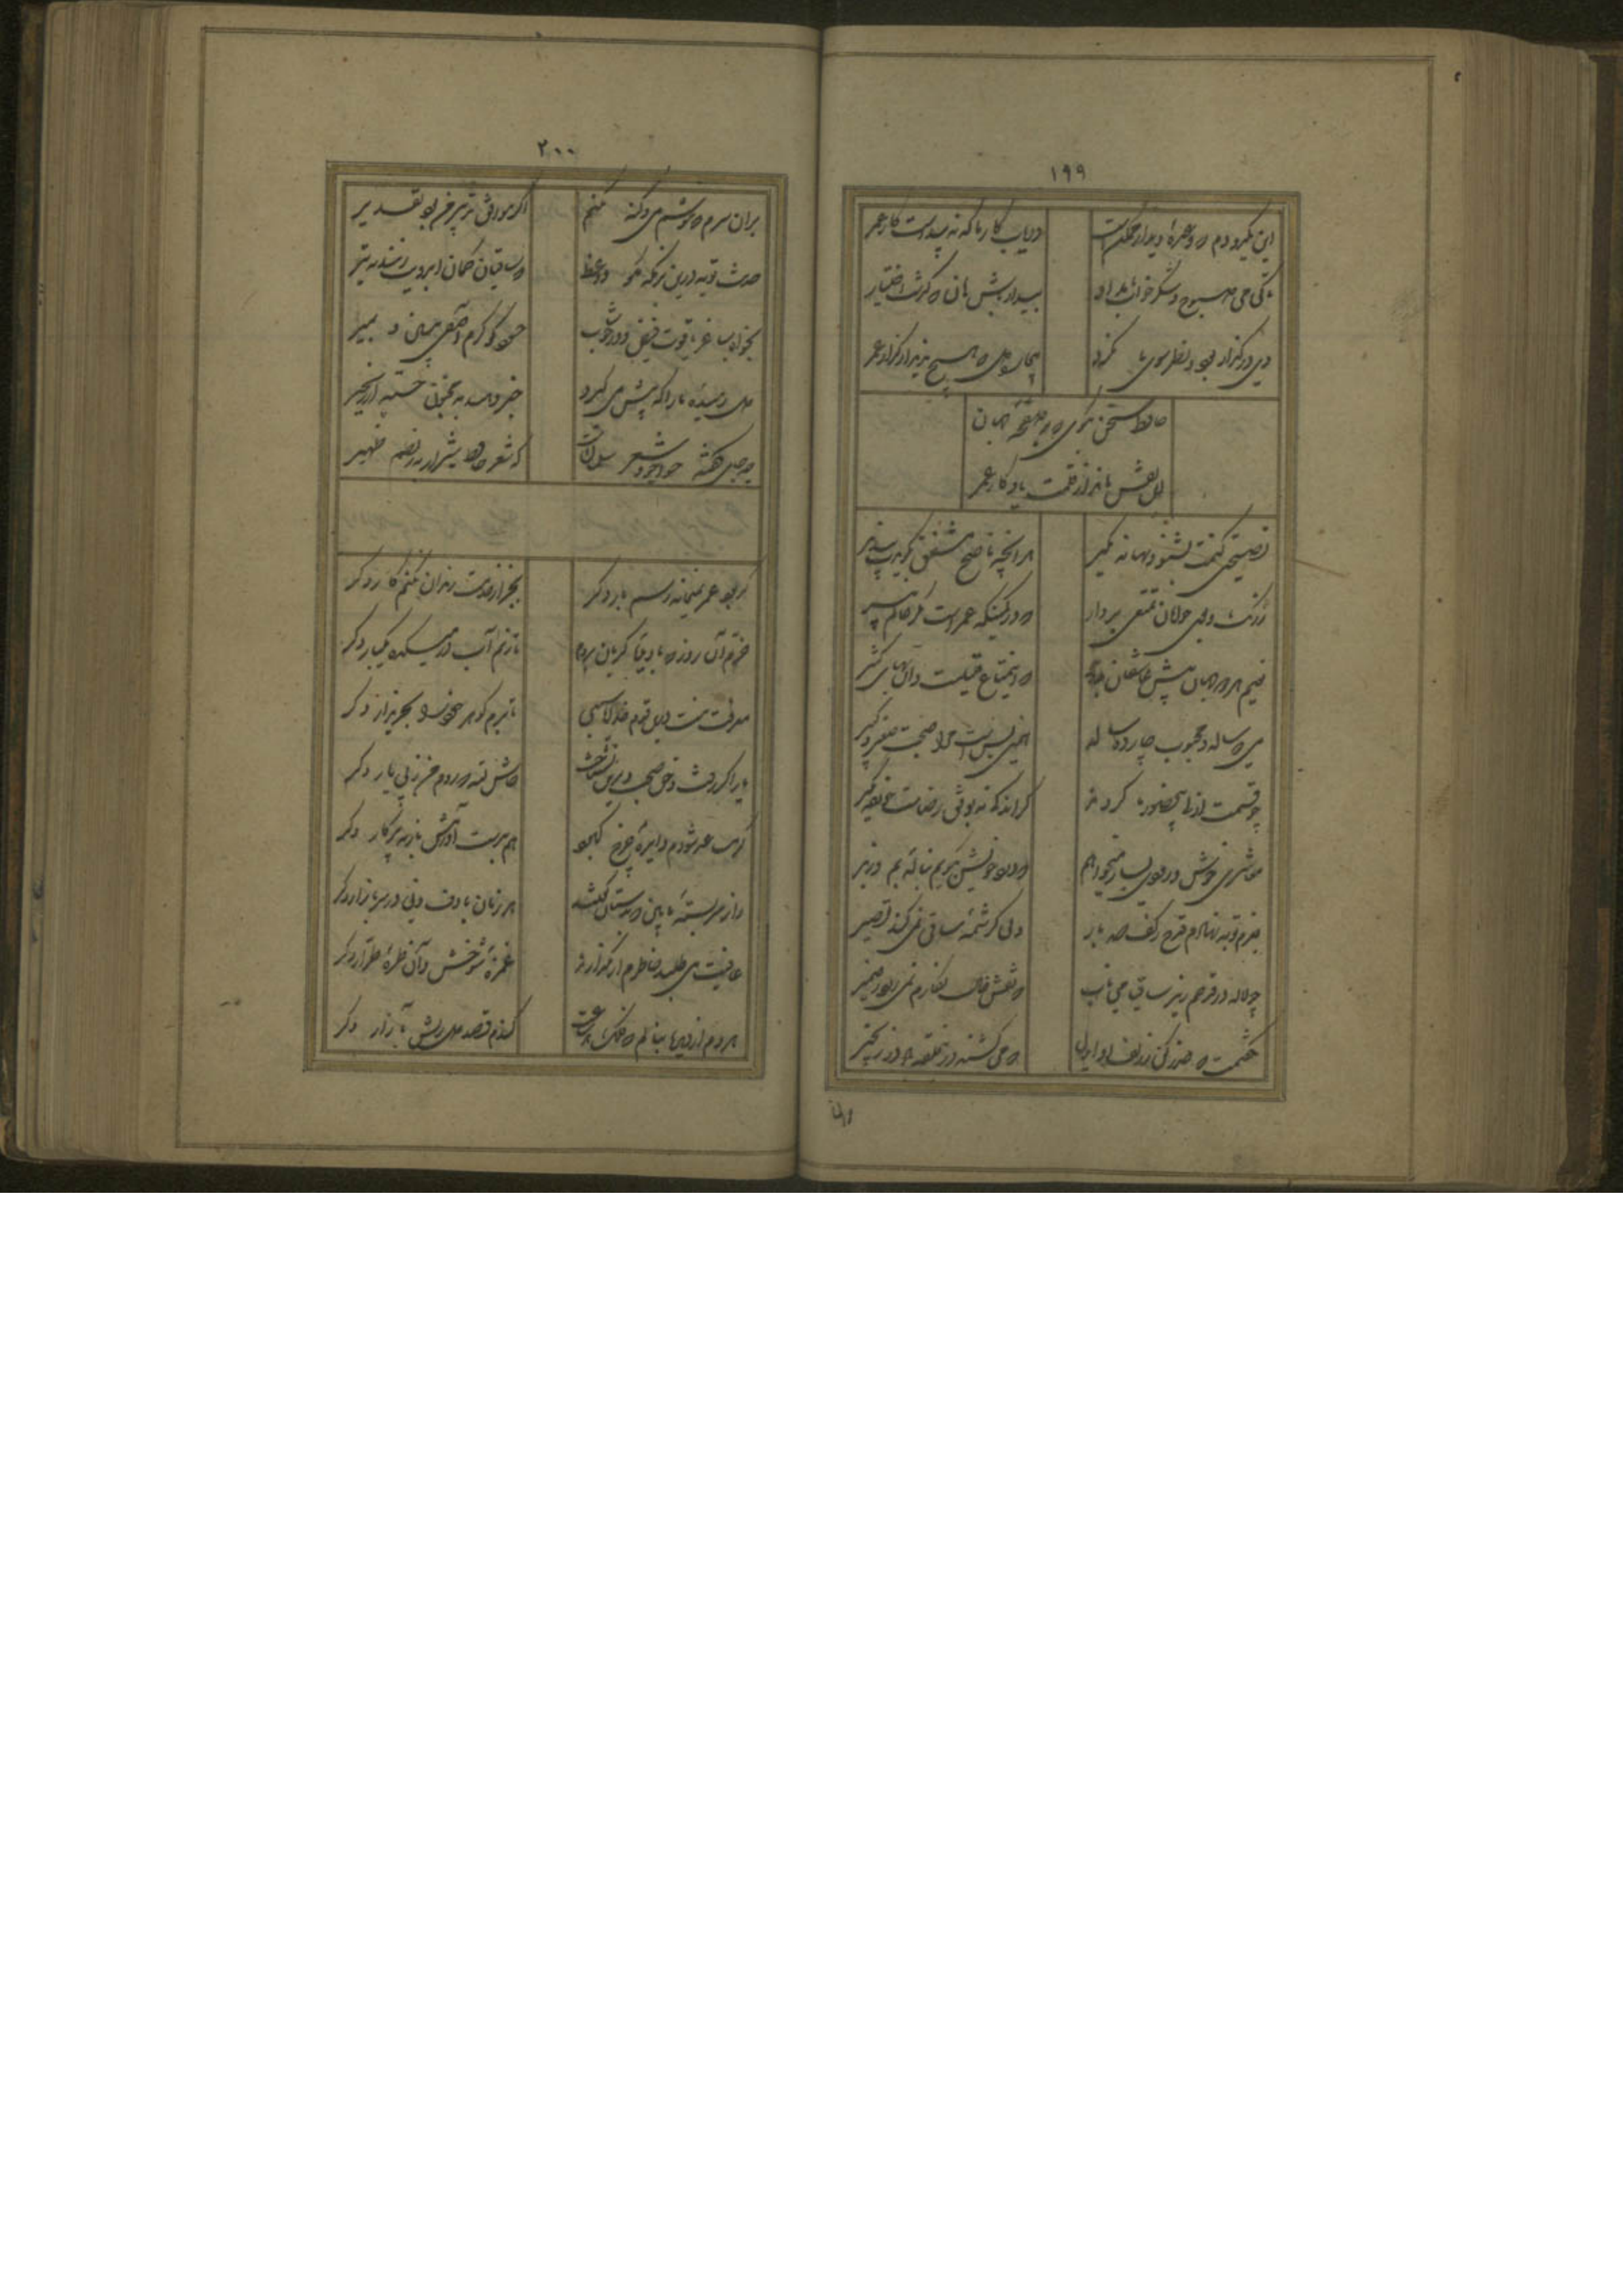 ۱۹۹
این یکدو دم که وعدهٔ دیدار ممکنست
دریاب کار ما که نه پیداست کار عمر
تا کی می صبوح و شکر خواب بامداد
بیدار باش هان که گذشت اختیار
دی در گذار بود و نظر سوی ما نکرد
بیچاره دل که هیچ ندید از گذار عمر
حافظ سخن بگوی که بر صفحهٔ جهان
این نقش ماند از قلمت یادگار عمر
نصیحتی کنمت بشنو و بهانه مگیر
هر آنچه ناصح مشفق بگویدت بپذیر
ز وصل روی جوانان تمتعی بردار
که در کمینگه عمرست مکر عالم پیر
نعیم هر دو جهان پیش عاشقان بجوی
که این متاع قلیلست و آن بهای کثیر
می دو ساله و محبوب چارده ساله
همین بس است مرا صحبت صغیر و کبیر
چو قسمت ازلی بیحضور ما کردند
گر اندکی نه بوفق رضاست خرده مگیر
معاشری خوش و رودی بساز میخواهم
که درد خویش بگویم بنالهٔ بم و زیر
بعزم توبه نهادم قدح ز کف صد بار
ولی کرشمهٔ ساقی نمی‌کند تقصیر
چو لاله در قدحم ریز ساقیا می ناب
که نقش خال نگارم نمی‌رود ز ضمیر
نگفتمت که حذر کن ز زلف او ای دل
که می‌کشند درین حلقه باد در زنجیر
بران
۲۰۰
بران سرم که ننوشم می و گنه نکنم
اگر موافق تدبیر من بود تقدیر
حدیث توبه درین بزمگه مگو واعظ
که ساقیان کمان ابرویت زنند به تیر
دل رمیدهٔ ما را که پیش می‌گیرد
خبر دهید به مجنون خسته از زنجیر
چه جای گفتهٔ خواجو و شعر سلمانست
که شعر حافظ شیراز به ز نظم ظهیر
گر بود عمر بمیخانه رسم بار دگر
بجز از خدمت رندان نکنم کار دگر
خرم آن روز که با دیدهٔ گریان بروم
تا زنم آب در میکده یکبار دگر
معرفت نیست درین قوم خدایا سببی
تا برم گوهر خود را بخریدار دگر
یار اگر رفت و حق صحبت دیرین نشناخت
حاش لله که روم من ز پی یار دگر
گر مساعد شودم دایرهٔ چرخ کبود
هم بدست آورمش باز به پرگار دگر
راز سربستهٔ ما بین که بدستان گفتند
هر زمان با دف و نی در سر بازار دگر
عافیت می‌طلبد خاطرم ار بگذارند
غمزهٔ شوخش و آن طرهٔ طرار دگر
هر دم از درد بنالم که فلک هر ساعت
کندم قصد دل ریش بآزار دگر